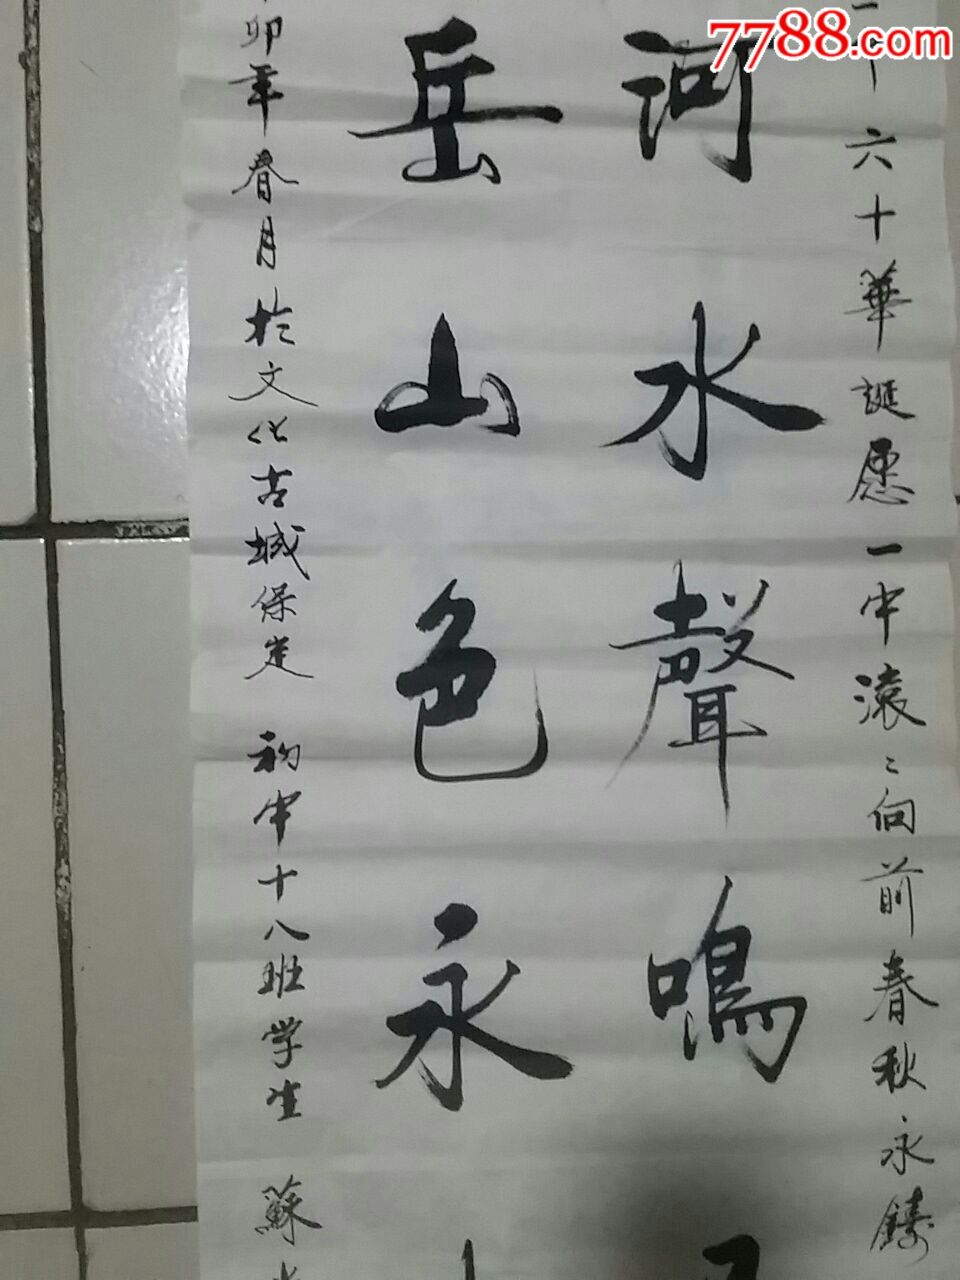 7788.com
六十華誕愿一中滚〻向前春秋永鑄
河水聲鳴
岳山色永
卯年春月於文化古城保定 初中十八班学生 蘇